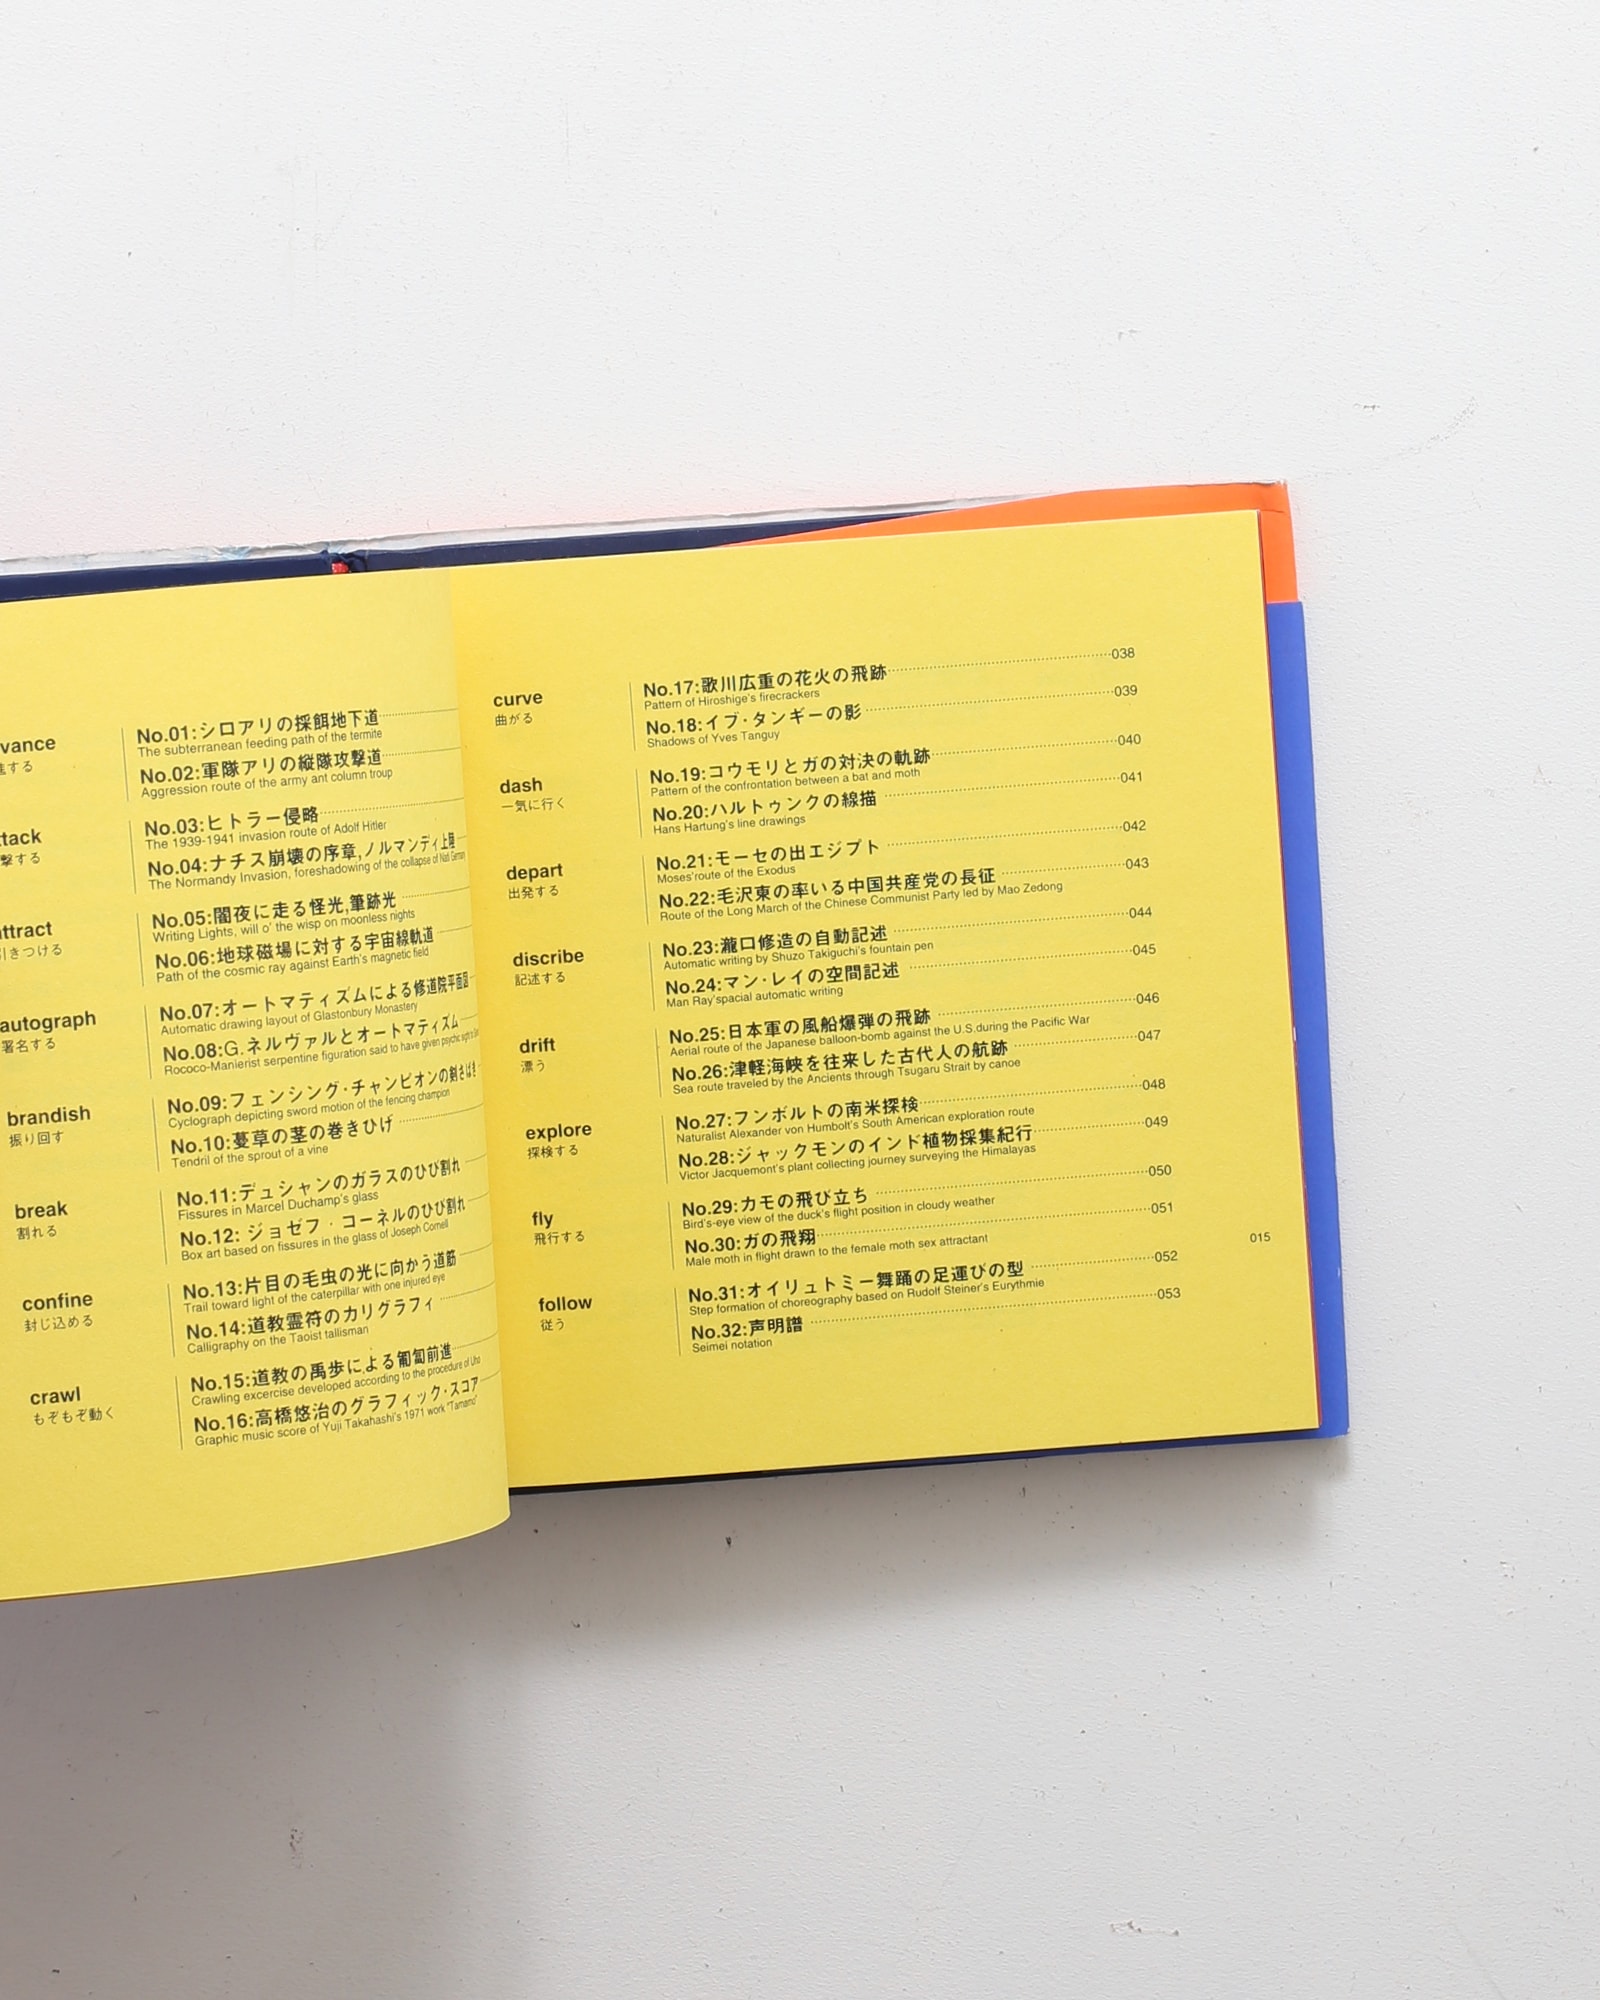 vance
進する
No.01:シロアリの採餌地下道
The subterranean feeding path of the termite
No.02:軍隊アリの縦隊攻撃道
Aggression route of the army ant column troup
ttack
撃する
No.03:ヒトラー侵略
The 1939-1941 invasion route of Adolf Hitler
No.04:ナチス崩壊の序章,ノルマンディ上陸
The Normandy Invasion, foreshadowing of the collapse of Nazi Germany
attract
引きつける
No.05:闇夜に走る怪光,筆跡光
Writing Lights, will o' the wisp on moonless nights
No.06:地球磁場に対する宇宙線軌道
Path of the cosmic ray against Earth's magnetic field
autograph
署名する
No.07:オートマティズムによる修道院平面図
Automatic drawing layout of Glastonbury Monastery
No.08:G.ネルヴァルとオートマティズム
Rococo-Manierist serpentine figuration said to have given psychic
brandish
振り回す
No.09:フェンシング・チャンピオンの剣さばき
Cyclograph depicting sword motion of the fencing champion
No.10:蔓草の茎の巻きひげ
Tendril of the sprout of a vine
break
割れる
No.11:デュシャンのガラスのひび割れ
Fissures in Marcel Duchamp's glass
No.12:ジョゼフ・コーネルのひび割れ
Box art based on fissures in the glass of Joseph Cornell
confine
封じ込める
No.13:片目の毛虫の光に向かう道筋
Trail toward light of the caterpillar with one injured eye
No.14:道教霊符のカリグラフィ
Calligraphy on the Taoist tallisman
crawl
もぞもぞ動く
No.15:道教の禹歩による匍匐前進
Crawling excercise developed according to the procedure of Uho
No.16:高橋悠治のグラフィック・スコア
Graphic music score of Yuji Takahashi's 1971 work "Tamamo"
curve
曲がる
No.17:歌川広重の花火の飛跡 038
Pattern of Hiroshige's firecrackers
No.18:イブ・タンギーの影 039
Shadows of Yves Tanguy
dash
一気に行く
No.19:コウモリとガの対決の軌跡 040
Pattern of the confrontation between a bat and moth
No.20:ハルトゥンクの線描 041
Hans Hartung's line drawings
depart
出発する
No.21:モーセの出エジプト 042
Moses'route of the Exodus
No.22:毛沢東の率いる中国共産党の長征 043
Route of the Long March of the Chinese Communist Party led by Mao Zedong
discribe
記述する
No.23:瀧口修造の自動記述 044
Automatic writing by Shuzo Takiguchi's fountain pen
No.24:マン・レイの空間記述 045
Man Ray'spacial automatic writing
drift
漂う
No.25:日本軍の風船爆弾の飛跡 046
Aerial route of the Japanese balloon-bomb against the U.S.during the Pacific War
No.26:津軽海峡を往来した古代人の航跡 047
Sea route traveled by the Ancients through Tsugaru Strait by canoe
explore
探検する
No.27:フンボルトの南米探検 048
Naturalist Alexander von Humbolt's South American exploration route
No.28:ジャックモンのインド植物採集紀行 049
Victor Jacquemont's plant collecting journey surveying the Himalayas
fly
飛行する
No.29:カモの飛び立ち 050
Bird's-eye view of the duck's flight position in cloudy weather
No.30:ガの飛翔 051
Male moth in flight drawn to the female moth sex attractant
follow
従う
No.31:オイリュトミー舞踊の足運びの型 052
Step formation of choreography based on Rudolf Steiner's Eurythmie
No.32:声明譜 053
Seimei notation
015